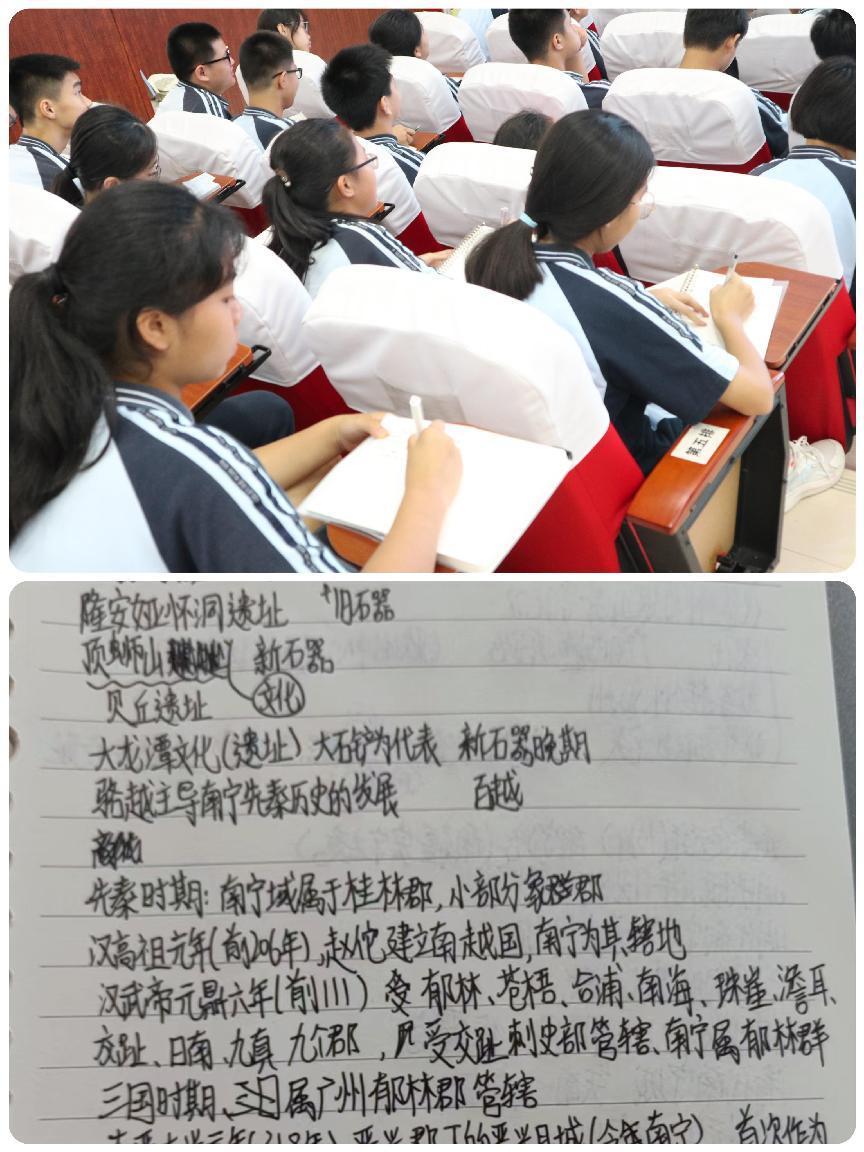 第五排
隆安娅怀洞遗址 +旧石器
顶蛳山 新石器
文化
贝丘遗址
大龙潭文化(遗址) 大石铲为代表 新石器晚期
骆越主导南宁先秦历史的发展 百越
先秦时期:南宁域属于桂林郡,小部分象郡
汉高祖元年(前206年),赵佗建立南越国,南宁为其辖地
汉武帝元鼎六年(前111) 受 郁林、苍梧、合浦、南海、珠崖、儋耳、
交趾、日南、九真 九个郡 , 受交趾刺史部管辖、南宁属郁林群
三国时期、 属广州郁林郡管辖
(今年南宁) 首次作为